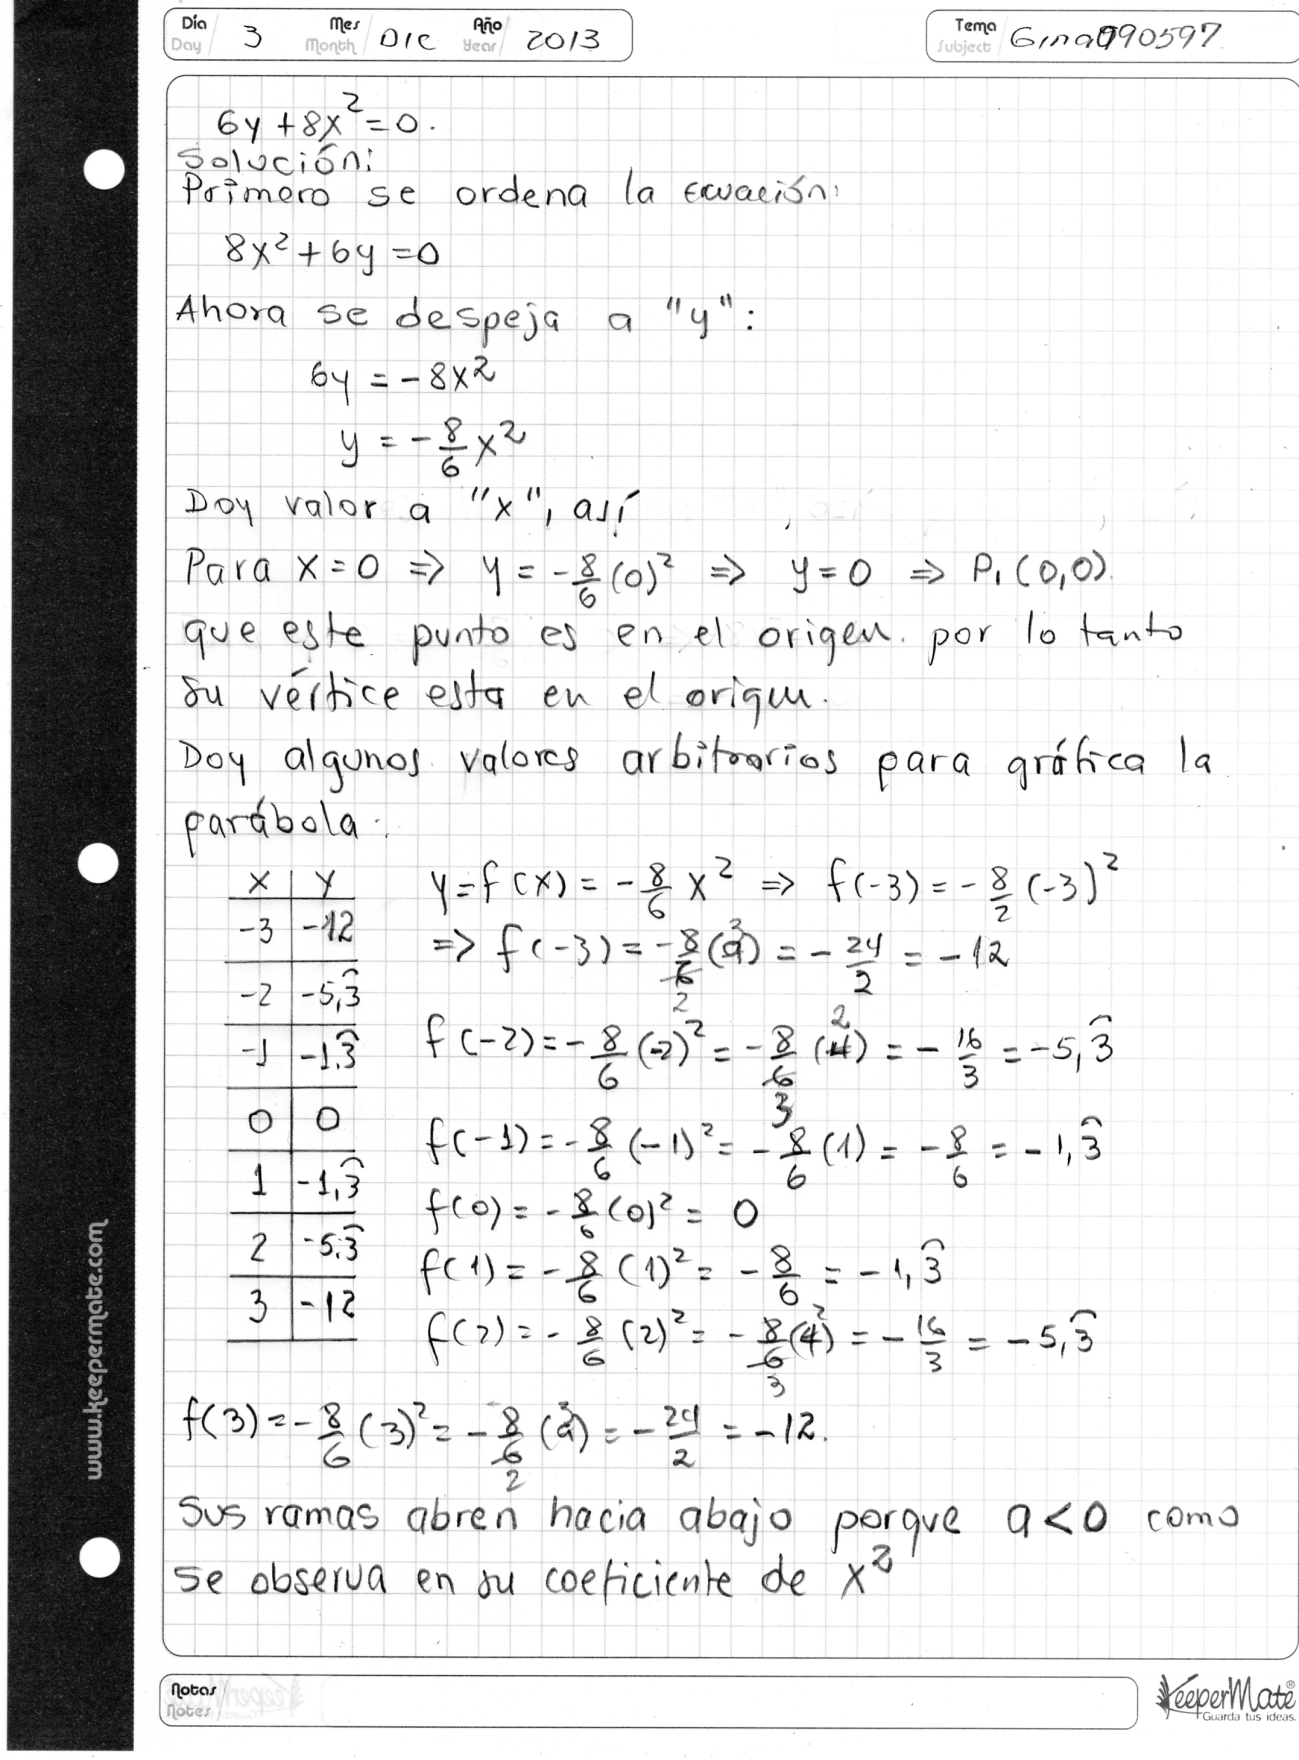 Día Day 3 Mes Month DIC Año Year 2013
Tema Subject Gina090597
6y + 8x² = 0.
Solución:
Primero se ordena la ecuación:
8x² + 6y = 0
Ahora se despeja a "y":
6y = -8x²
y = -8/6 x²
Doy valor a "x", así
Para x = 0 ⇒ y = -8/6 (0)² ⇒ y = 0 ⇒ P₁(0,0)
que este punto es en el origen. por lo tanto
su vértice esta en el origen.
Doy algunos valores arbitrarios para gráfica la
parábola.
x | y
-3 | -12
-2 | -5,3̂
-1 | -1,3̂
0 | 0
1 | -1,3̂
2 | -5,3̂
3 | -12
y = f(x) = -8/6 x² ⇒ f(-3) = -8/2 (-3)²
⇒ f(-3) = -8/6 (9) = -24/2 = -12
2 3
f(-2) = -8/6 (-2)² = -8/6 (4) = -16/3 = -5,3̂
3 2
f(-1) = -8/6 (-1)² = -8/6 (1) = -8/6 = -1,3̂
f(0) = -8/6 (0)² = 0
f(1) = -8/6 (1)² = -8/6 = -1,3̂
f(2) = -8/6 (2)² = -8/6 (4) = -16/3 = -5,3̂
3 2
f(3) = -8/6 (3)² = -8/6 (9) = -24/2 = -12.
2 3
Sus ramas abren hacia abajo porque a < 0 como
se observa en su coeficiente de x²
www.keepermate.com
Notas
Notes
KeeperMate®
Guarda tus ideas.